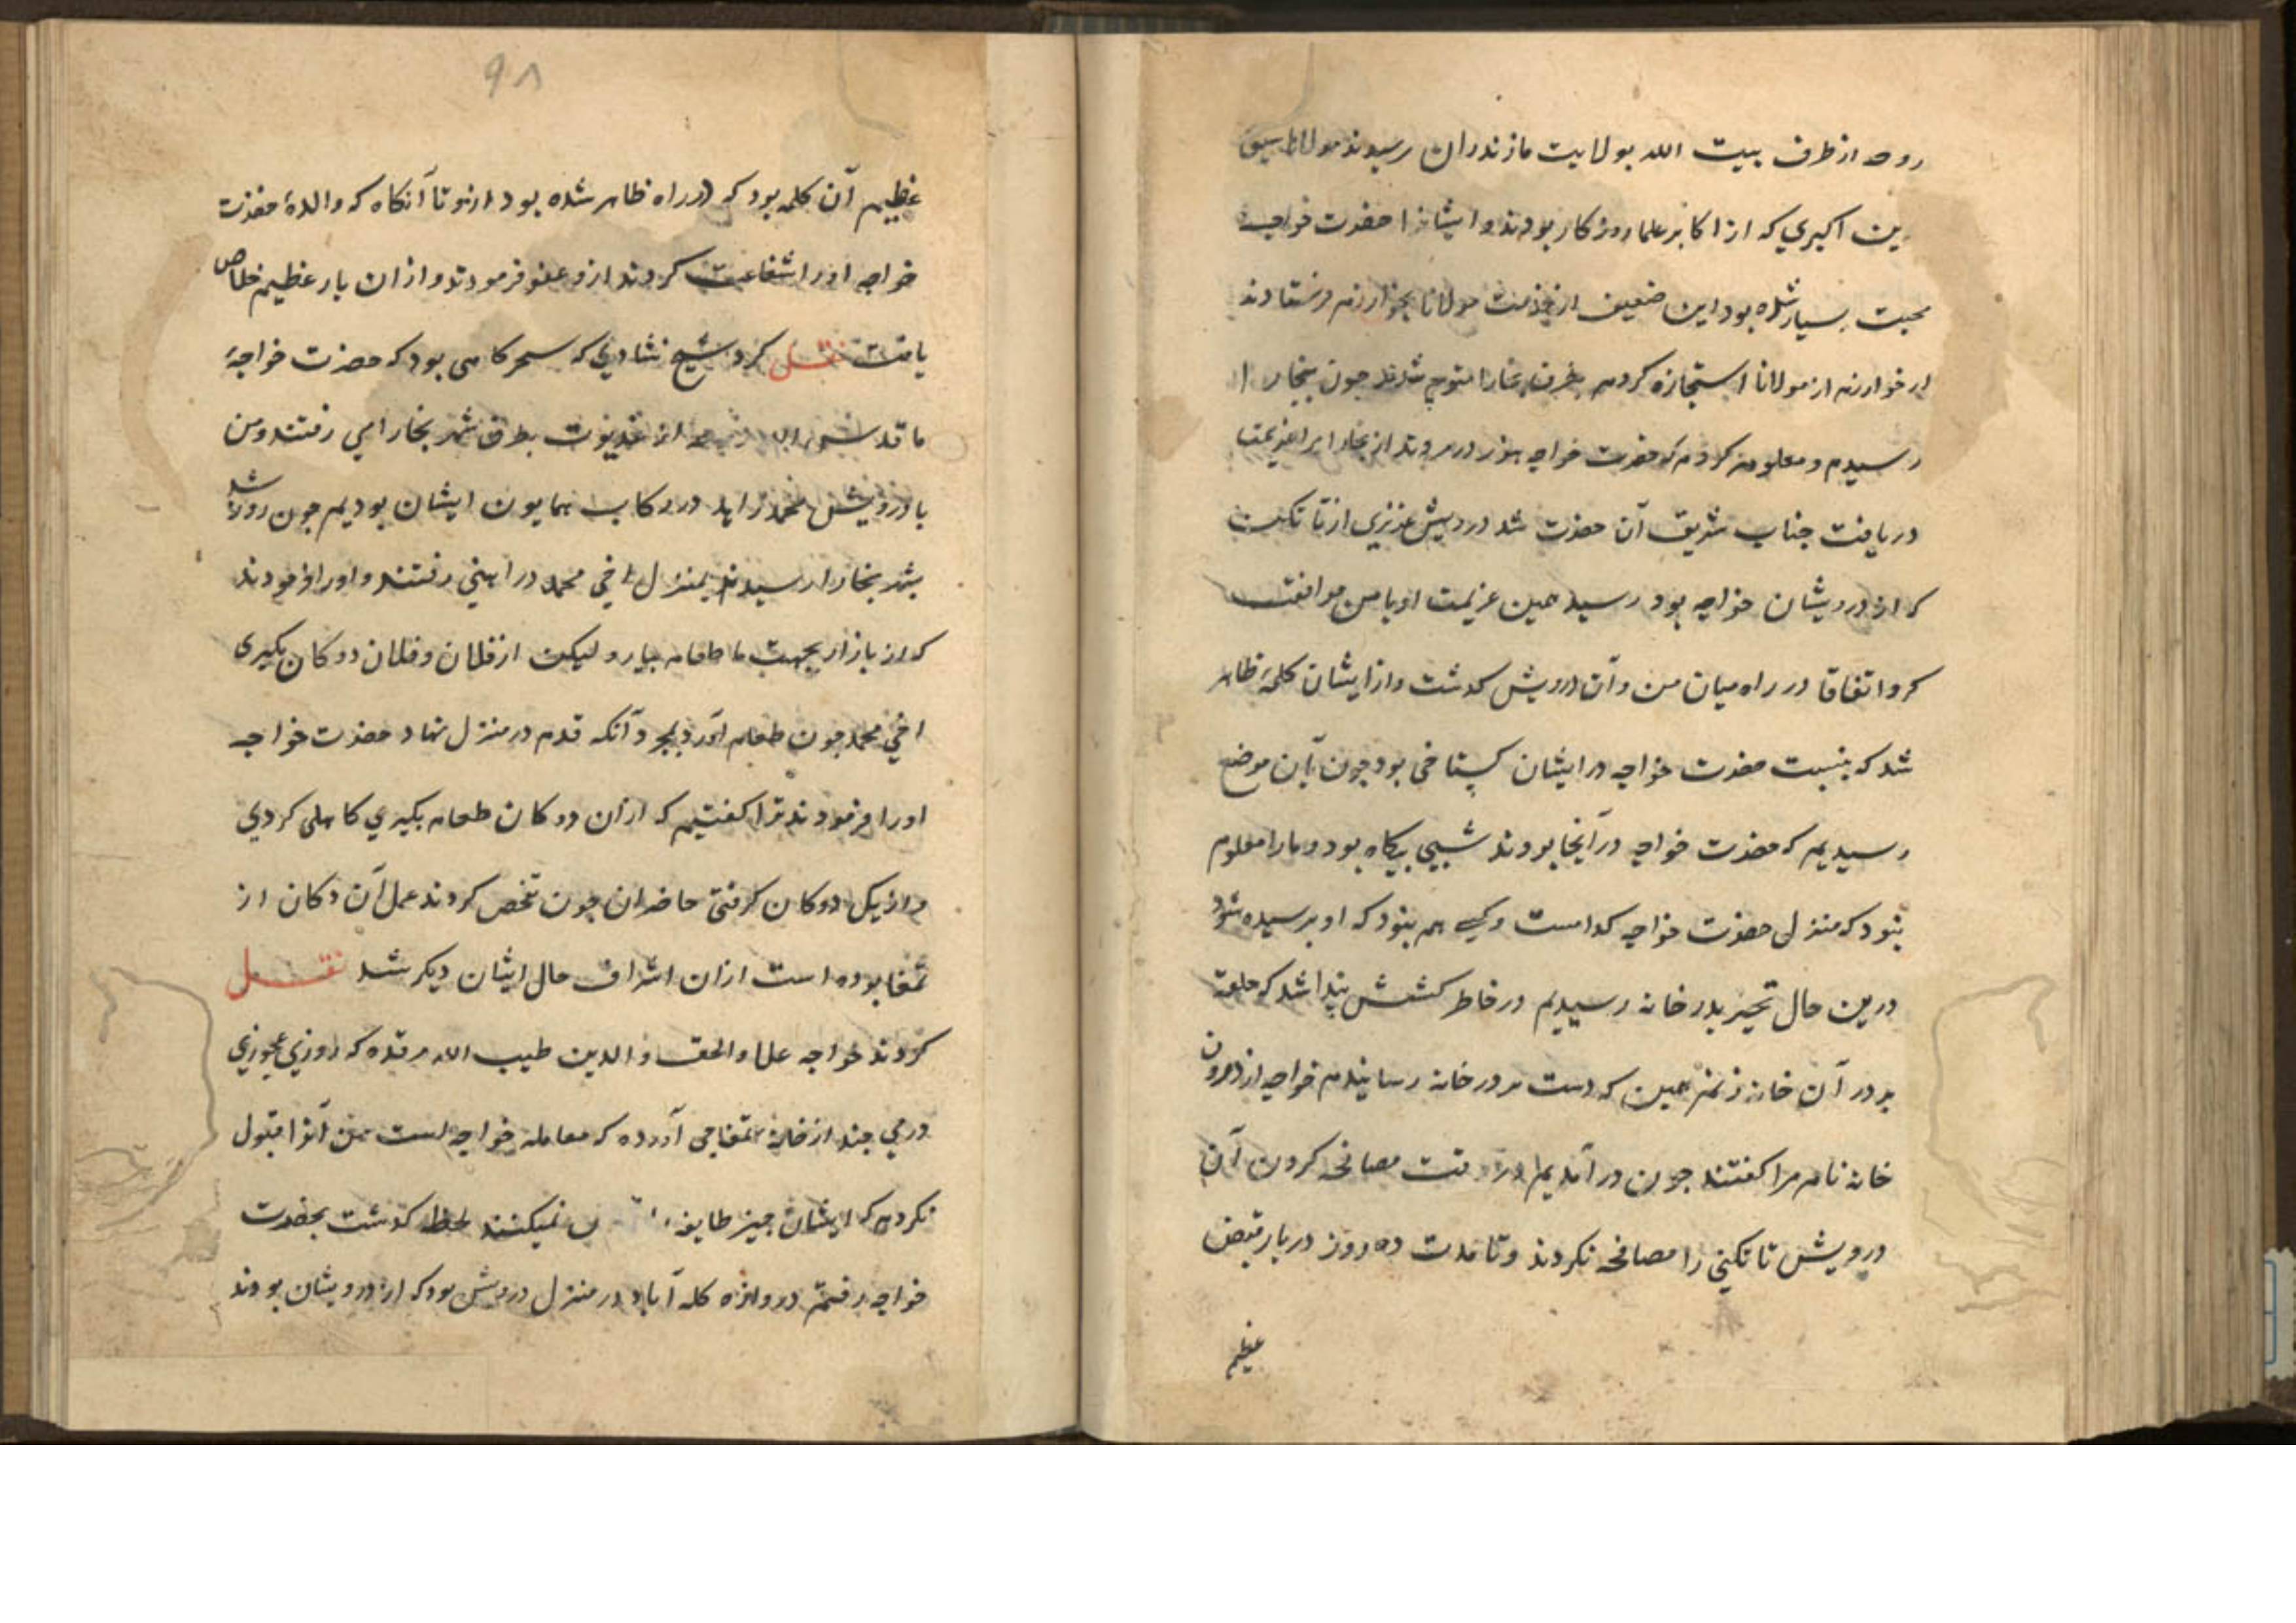 روحه از طرف بیت الله بولایت مازندران رسیدند مولانا
اکبری که از اکابر علماء روزکار بودند و ایشانرا حضرت خواجه
محبت بسیار شده بود این ضعیف از خذمت مولانا بخوارزم فرستادند
از خوارزم از مولانا استجازه کردم بطرف بخارا متوجه شدند جون ببخارا
رسیدم و معلوم کردم که حضرت خواجه هنوز در مروند از بخارا مرا عزیمت
دریافت جناب شریف آن حضرت شد درویش عزیزی از تاتکت
که از درویشان خواجه بود رسید همین عزیمت او با من موافقت
کرد اتفاقا در راه میان من و آن درویش کدشت و از ایشان کلمهٔ ظاهر
شد که بنسبت حضرت خواجه در ایشان کستاخی بود جون بآن موضع
رسیدیم که حضرت خواجه در آنجا بودند شبی بیکاه بود و ما را معلوم
نبود که منزل حضرت خواجه کدامست و کسی هم نبود که او پرسیده شود
درین حال تحیر بدر خانه رسیدیم در خاطر کشش پیدا شد که حلقه
بر در آن خانه زنم همین که دست بر در خانه رسانیدم خواجه از درون
خانه نام مرا کفتند جون در آمدیم در وقت مصافحه کردن آن
درویش تاتکنی را مصافحه نکردند و تا مدت ده روز در بار قبض
عظیم
۹۸
عظیم آن کلمه بود که در راه ظاهر شده بود ازو تا آنکاه که والدهٔ حضرت
خواجه او را شفاعت کردند ازو عفو فرمودند و از آن بار عظیم خلاص
یافت نقل کرد شیخ شادی که سحرکاهی بود که حضرت خواجهٔ
ما قدس الله روحه از غدیوت بطرف شهر بخارا می رفتند و من
با درویش محمد زاهد در رکاب همایون ایشان بودیم جون روز شد
بشهر بخارا رسیدند بمنزل اخی محمد درآهنی رفتند و او را فرمودند
که از بازار بجهت ما طعام بیار و لیکن از فلان و فلان دوکان بکیری
اخی محمد جون طعام آورد بمجرد آنکه قدم در منزل نهاد حضرت خواجه
او را فرمودند ترا کفتیم که از آن دوکان طعام بکیری کاهلی کردی
و از یک دوکان کرفتی حاضران جون تفحص کردند عمل آن دکان از
تمغا بوده است از آن اشراف حال ایشان دیکر شد نقل
کردند خواجه علاء الحق و الدین طیب الله مرقده که روزی عجوزی
درمی جند از خانهٔ تمغاجی آورده که معامله خواجه است من آنرا قبول
نکردم که ایشان جیز طایفه نمیکنند لحظه کدشت بحضرت
خواجه رفتم دروازه کله آباد در منزل درویش بود که از درویشان بودند